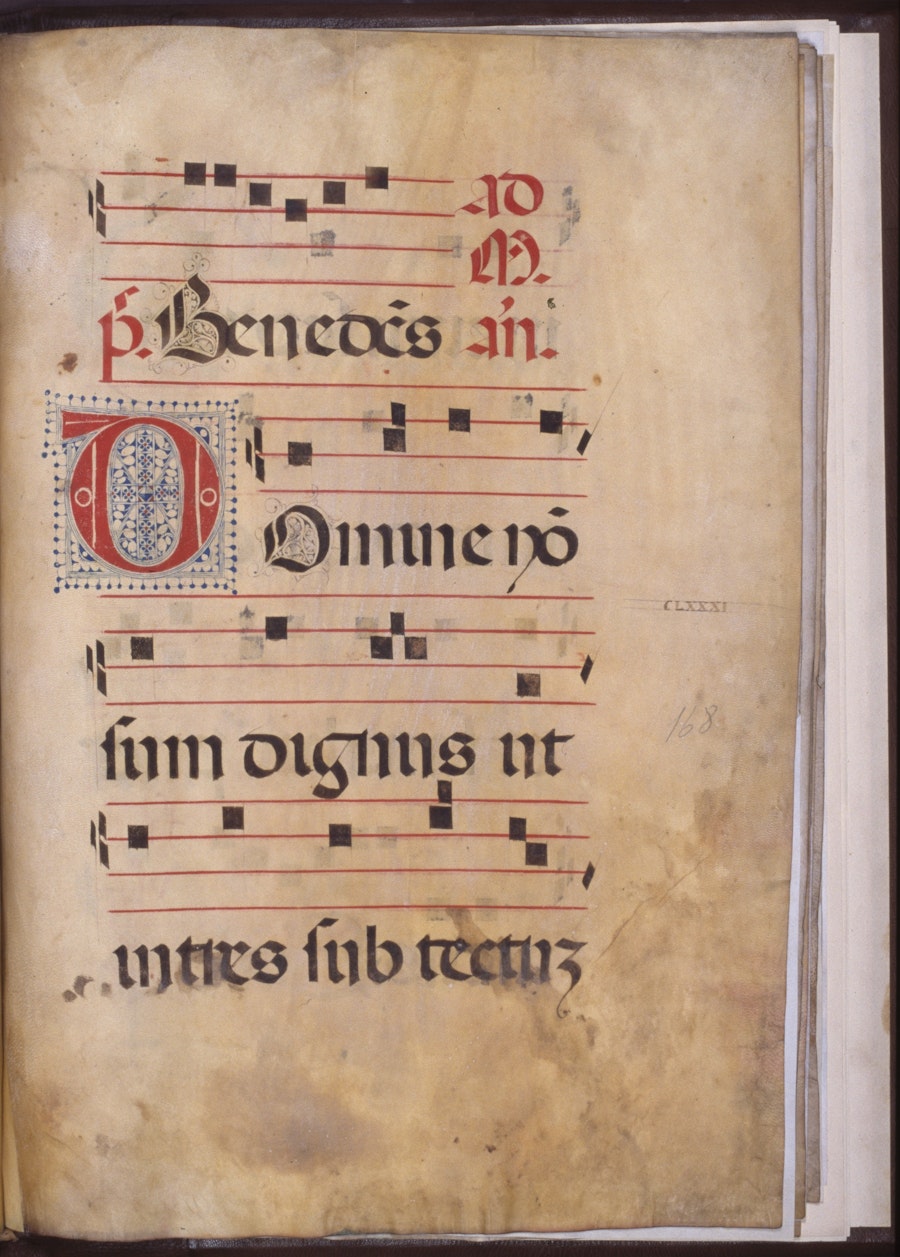 Ad
M.
p̄. Benedc̄s an̄.
Domine nō
sum dignus ut
CLXXXI
168
intres sub tectuʒ